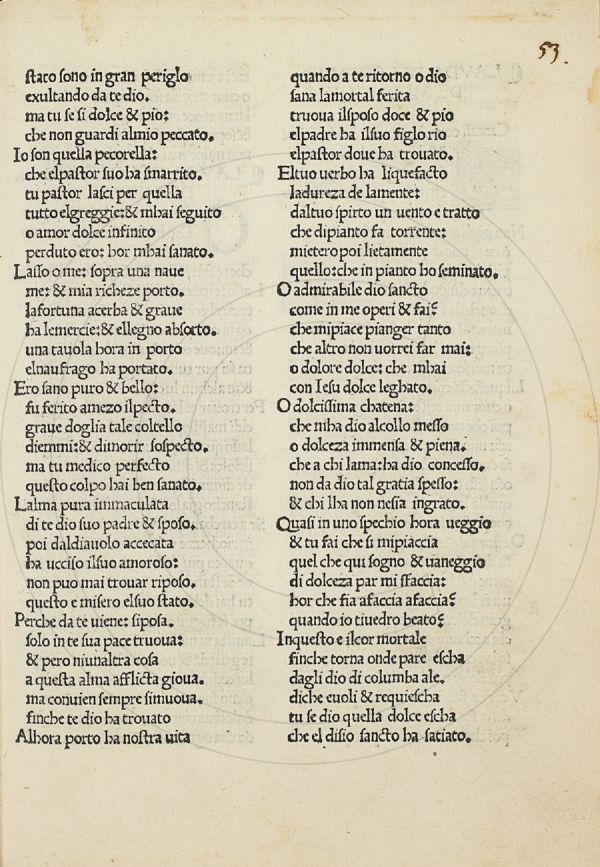 53.
stato sono in gran periglo
exultando da te dio.
ma tu se si dolce & pio:
che non guardi almio peccato.
Io son quella pecorella:
che elpastor suo ha smarrito.
tu pastor lasci per quella
tutto elgreggie:& mhai seguito
o amor dolce infinito
perduto ero: hor mhai sanato.
Lasso o me: sopra una naue
me: & mia richeze porto.
lafortuna acerba & graue
ha lemercie:& ellegno absorto.
una tauola hora in porto
elnaufrago ha portato.
Ero sano puro & bello:
fu ferito amezo ilpecto.
graue doglia tale coltello
diemmi:& dimorir sospecto.
ma tu medico perfecto
questo colpo hai ben sanato.
Lalma pura immaculata
di te dio suo padre & sposo.
poi daldiauolo accecata
ha ucciso ilsuo amoroso:
non puo mai trouar riposo.
questo e misero elsuo stato.
Perche da te uiene: siposa.
solo in te sua pace truoua:
& pero niunaltra cosa
a questa alma afflicta gioua.
ma conuien sempre simuoua.
finche te dio ha trouato
Alhora porto ha nostra uita
quando a te ritorno o dio
sana lamortal ferita
truoua ilsposo doce & pio
elpadre ha ilsuo figlo rio
elpastor doue ha trouato.
Eltuo uerbo ha liquefacto
ladureza de lamente:
daltuo spirto un uento e tratto
che dipianto fa torrente:
mietero poi lietamente
quello:che in pianto ho seminato.
O admirabile dio sancto
come in me operi & fai?
che mipiace pianger tanto
che altro non uorrei far mai:
o dolore dolce: che mhai
con Iesu dolce leghato.
O dolcissima chatena:
che mha dio alcollo messo
o dolceza immensa & piena.
che a chi lama:ha dio concesso.
non da dio tal gratia spesso:
& chi lha non nessia ingrato.
Quasi in uno spechio hora ueggio
& tu fai che si mipiaccia
quel che qui sogno & uaneggio
di dolceza par mi sfaccia:
hor che fia afaccia afaccia?
quando io tiuedro beato?
Inquesto e ilcor mortale
finche torna onde pare escha
dagli dio di columba ale.
diche euoli & requiescha
tu se dio quella dolce escha
che el disio sancto ha satiato.